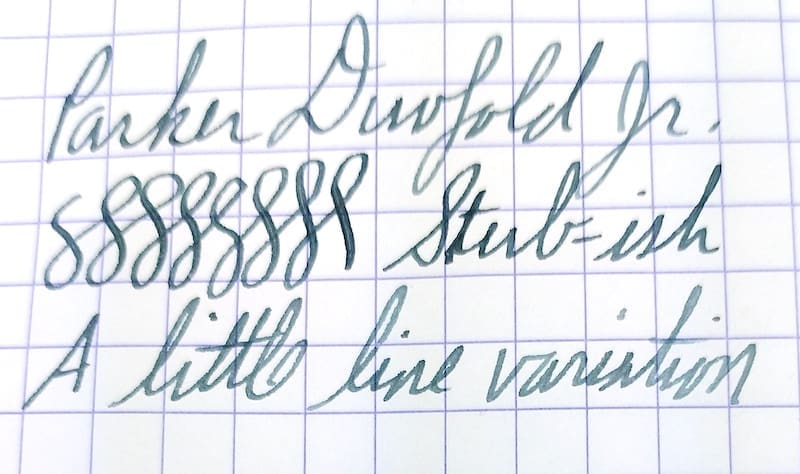 Parker Duofold Jr.
Stub-ish
A little line variation